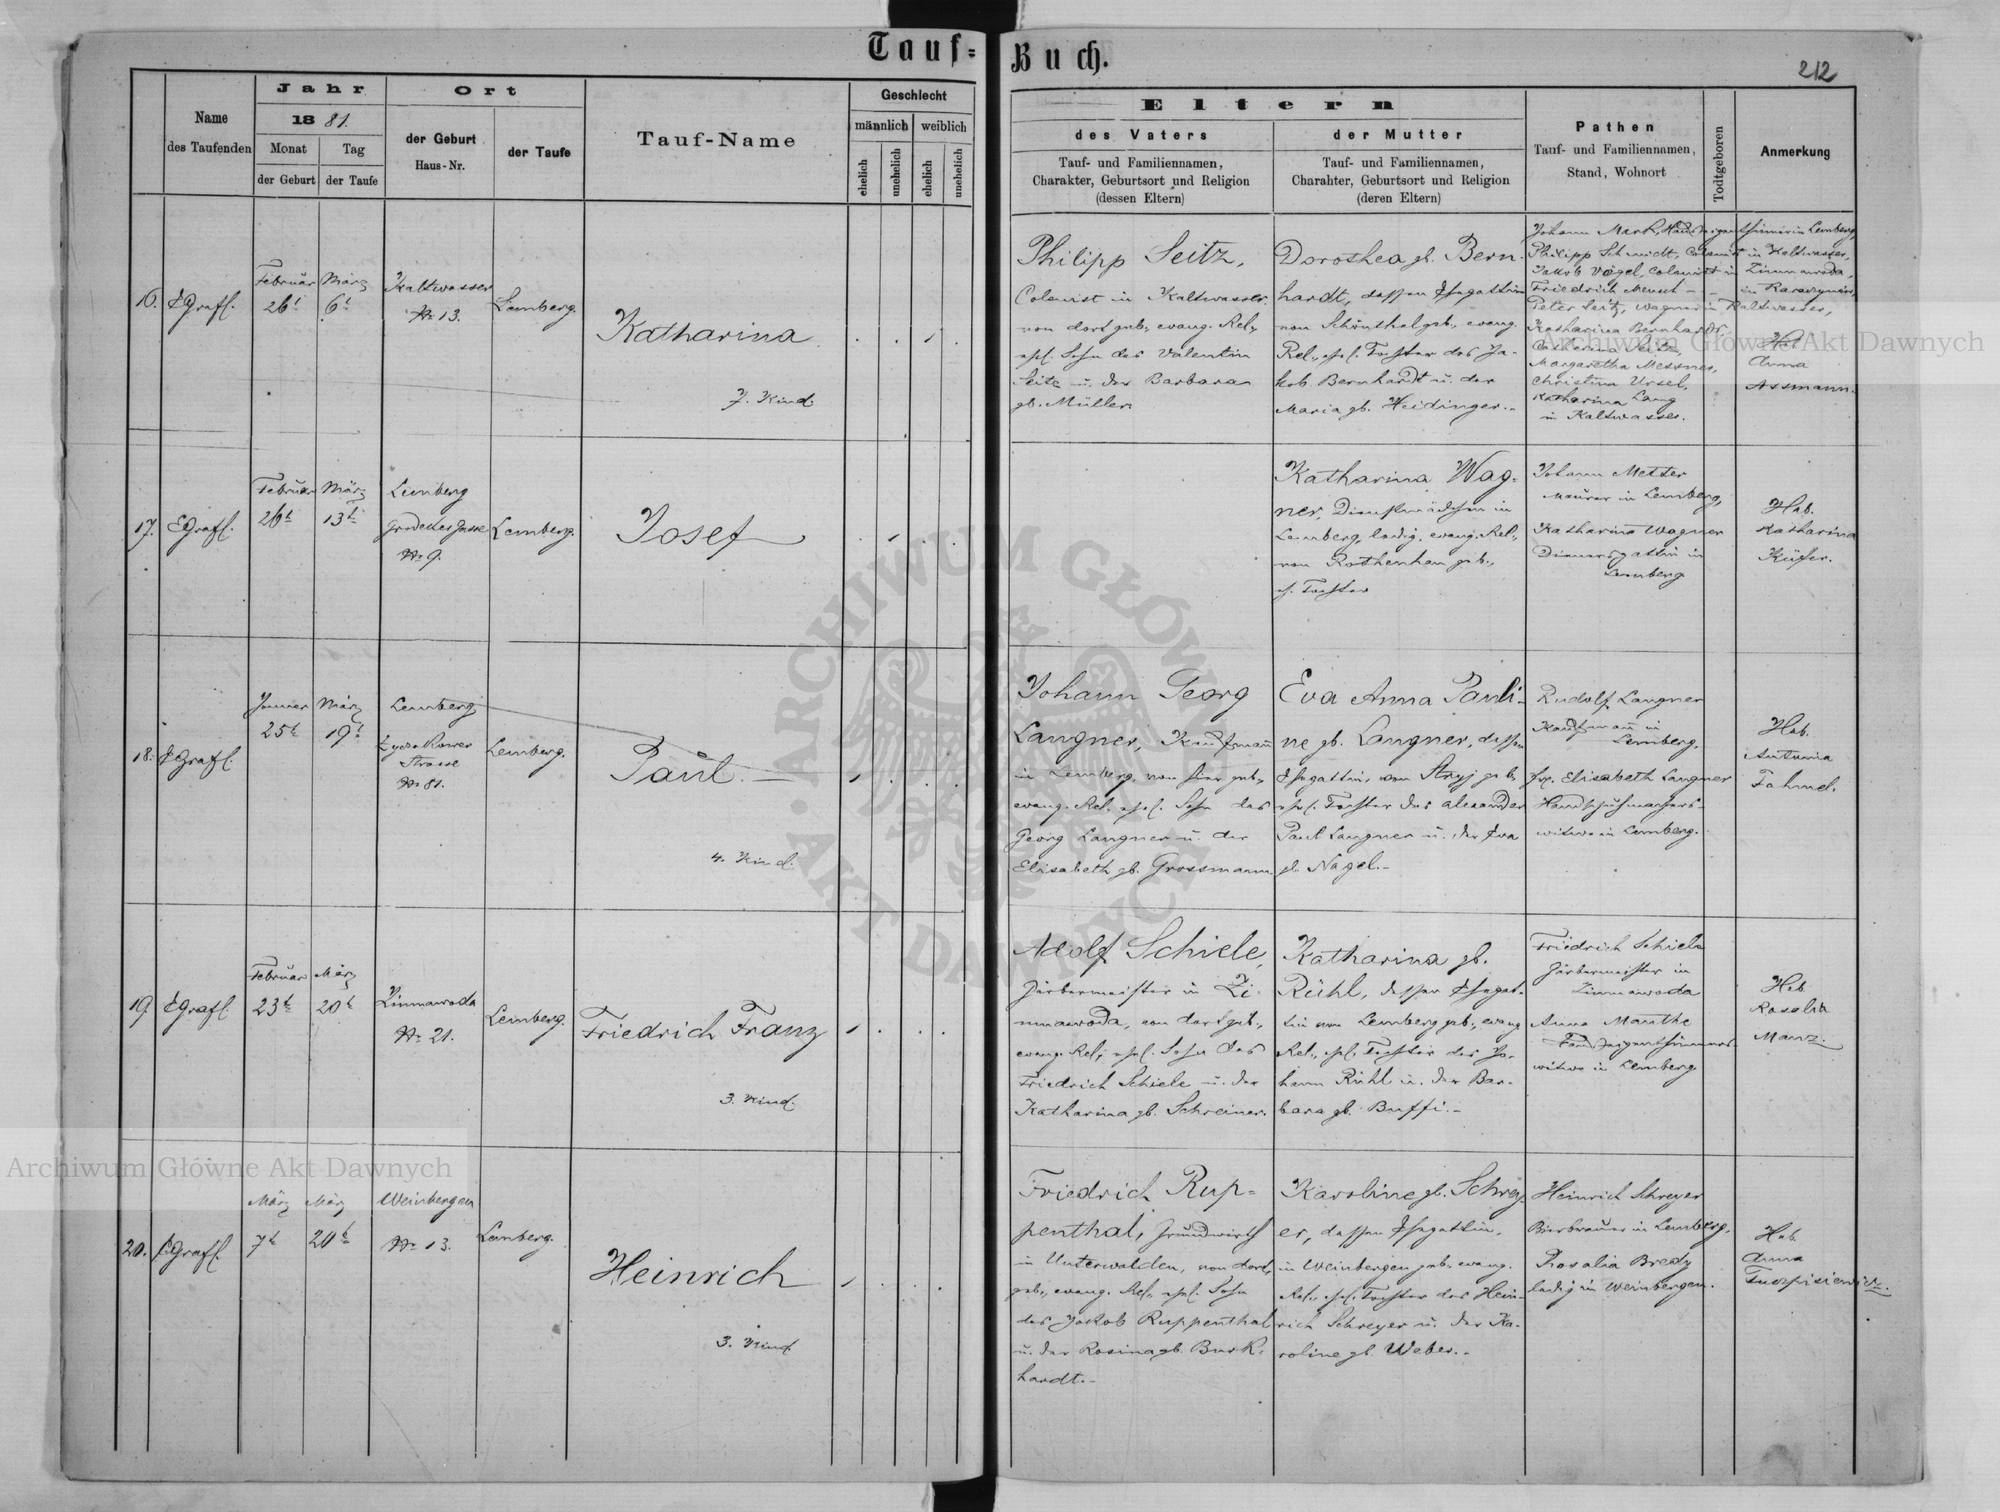 Tauf-
Buch.
212
Name
des Taufenden
Jahr
18 81.
Monat
der Geburt
Tag
der Taufe
Ort
der Geburt
Haus-Nr.
der Taufe
Tauf-Name
Geschlecht
männlich
weiblich
ehelich
unehelich
ehelich
unehelich
Eltern
des Vaters
Tauf- und Familiennamen,
Charakter, Geburtsort und Religion
(dessen Eltern)
der Mutter
Tauf- und Familiennamen,
Charahter, Geburtsort und Religion
(deren Eltern)
Pathen
Tauf- und Familiennamen,
Stand, Wohnort
Todtgeboren
Anmerkung
16.
EGrafl.
Februar
26t
März
6t
Kaltwasser
Nr 13.
Lemberg.
Katharina
7. Kind.
Philipp Seitz,
Colonist in Kaltwasser
von dort geb., evang. Rel.,
ehel. Sohn des Valentin
Seitz u. der Barbara
gb. Müller.
Dorothea gb. Bern-
hardt, dessen Ehegattin
von Schönthal geb., evang.
Rel., ehel. Tochter des Ja-
kob Bernhardt u. der
Maria gb. Heidinger.-
Johann Mark, Hauseigenthümer in Lemberg,
Philipp Schmidt, Colonist in Kaltwasser,
Jakob Vogel, Colonist in Zimnawoda,
Friedrich Mensch - -
Peter Seitz, Wagner in Kaltwasser,
Katharina Bernhardt
Katharina Seitz,
Margaretha Messner,
Christina Ursel,
Katharina Lang
in Kaltwasser.
Heb.
Anna
Assmann.
17.
EGrafl.
Februar
26t
März
13t
Lemberg
Grodeckergasse
Nr 9.
Lemberg.
Josef
Katharina Wag-
ner, Dienstmädchen in
Lemberg, ledig, evang. Rel.,
von Rothenhan geb.,
e. Tochter
Johann Metter
Maurer in Lemberg,
Katharina Wagner
Dienersgattin in
Lemberg
Heb.
Katharina
Küfer.
18.
EGrafl.
Jänner
25t
März
19t
Lemberg
Łyczakower
Strasse
Nr 81.
Lemberg.
Paul.
4. Kind.
Johann Georg
Langner, Kaufmann
in Lemberg, von hier geb.,
evang. Rel. ehel. Sohn des
Georg Langner u. der
Elisabeth gb. Grossmann.
Eva Anna Pauli-
ne gb. Langner, dessen
Ehegattin, von Stryj geb.
ehel. Tochter des Alexander
Paul Langner u. der Eva
gb. Nagel.-
Rudolf Langner
Kaufmann in
Lemberg,
Elisabeth Langner
Handschuhmachers-
witwe in Lemberg.
Heb.
Antonia
Fahmel.
19.
EGrafl.
Februar
23t
März
20t
Zimnawoda
Nr 21.
Lemberg.
Friedrich Franz
3. Kind.
Adolf Schiele,
Färbermeister in Zi-
mnawoda, von dort geb.,
evang. Rel., ehel. Sohn des
Friedrich Schiele u. der
Katharina gb. Schreiner.
Katharina gb.
Rühl, dessen Ehegat-
tin von Lemberg geb., evang.
Rel., ehel. Tochter des Jo-
hann Rühl u. der Bar-
bara gb. Buffi.-
Friedrich Schiele
Färbermeister in
Zimnawoda
Anna Manthe
witwe in Lemberg
Heb.
Rosalia
Manz.
20.
EGrafl.
März
7t
März
20t
Weinbergen
Nr 13.
Lemberg.
Heinrich
3. Kind
Friedrich Rup-
penthal, Grundwirth
in Unterwalden, von dort
geb., evang. Rel., ehel. Sohn
des Jakob Ruppenthal
u. der Rosina gb. Burk-
hardt.-
Karoline gb. Schrey-
er, dessen Ehegattin,
in Weinbergen geb., evang.
Rel., ehel. Tochter des Hein-
rich Schreyer u. der Ka-
roline gb. Weber.-
Heinrich Schreyer
Bierbrauer in Lemberg,
Rosalia Bredy
ledig in Weinbergen.
Heb.
Anna
Archiwum Główne Akt Dawnych
Archiwum Główne Akt Dawnych
ARCHIWUM GŁÓWNE AKT DAWNYCH